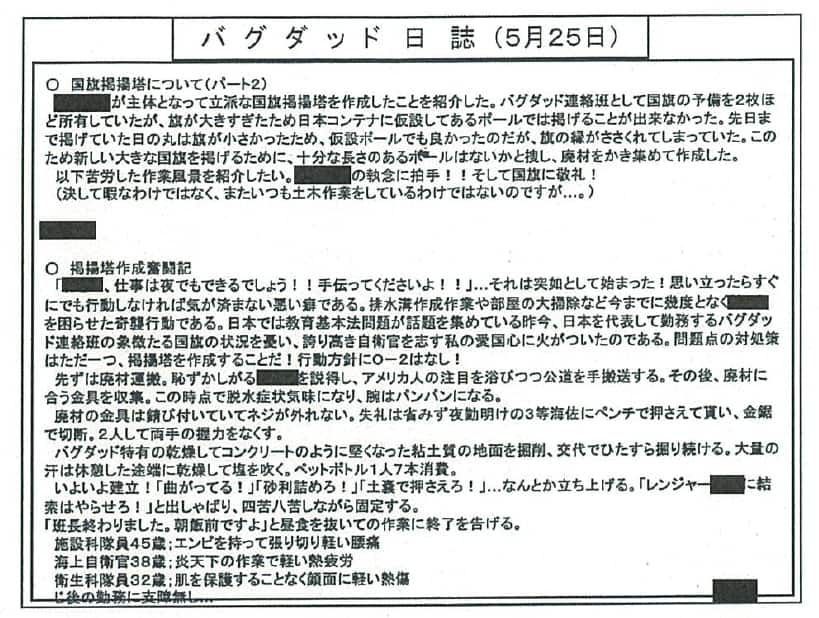 バグダッド日誌（5月25日）
○ 国旗掲揚塔について（パート2）
が主体となって立派な国旗掲揚塔を作成したことを紹介した。バグダッド連絡班として国旗の予備を2枚ほ
ど所有していたが、旗が大きすぎたため日本コンテナに仮設してあるポールでは掲げることが出来なかった。先日ま
で掲げていた日の丸は旗が小さかったため、仮設ポールでも良かったのだが、旗の縁がささくれてしまっていた。この
ため新しい大きな国旗を掲げるために、十分な長さのあるポールはないかと捜し、廃材をかき集めて作成した。
以下苦労した作業風景を紹介したい。の執念に拍手！！そして国旗に敬礼！
（決して暇なわけではなく、またいつも土木作業をしているわけではないのですが…。）
○ 掲揚塔作成奮闘記
「、仕事は夜でもできるでしょう！！手伝ってくださいよ！！」…それは突如として始まった！思い立ったらすぐ
にでも行動しなければ気が済まない悪い癖である。排水溝作成作業や部屋の大掃除など今までに幾度となく
を困らせた奇襲行動である。日本では教育基本法問題が話題を集めている昨今、日本を代表して勤務するバグダッ
ド連絡班の象徴たる国旗の状況を憂い、誇り高き自衛官を志す私の愛国心に火がついたのである。問題点の対処策
はただ一つ、掲揚塔を作成することだ！行動方針にO－2はなし！
先ずは廃材運搬。恥ずかしがるを説得し、アメリカ人の注目を浴びつつ公道を手搬送する。その後、廃材に
合う金具を収集。この時点で脱水症状気味になり、腕はパンパンになる。
廃材の金具は錆び付いていてネジが外れない。失礼は省みず夜勤明けの3等海佐にペンチで押さえて貰い、金鋸
で切断。2人して両手の握力をなくす。
バグダッド特有の乾燥してコンクリートのように堅くなった粘土質の地面を掘削、交代でひたすら掘り続ける。大量の
汗は休憩した途端に乾燥して塩を吹く。ペットボトル1人7本消費。
いよいよ建立！「曲がってる！」「砂利詰めろ！」「土嚢で押さえろ！」…なんとか立ち上げる。「レンジャーに結
索はやらせろ！」と出しゃばり、四苦八苦しながら固定する。
「班長終わりました。朝飯前ですよ」と昼食を抜いての作業に終了を告げる。
施設科隊員45歳；エンピを持って張り切り軽い腰痛
海上自衛官38歳；炎天下の作業で軽い熱疲労
衛生科隊員32歳；肌を保護することなく顔面に軽い熱傷
じ後の勤務に支障無し…